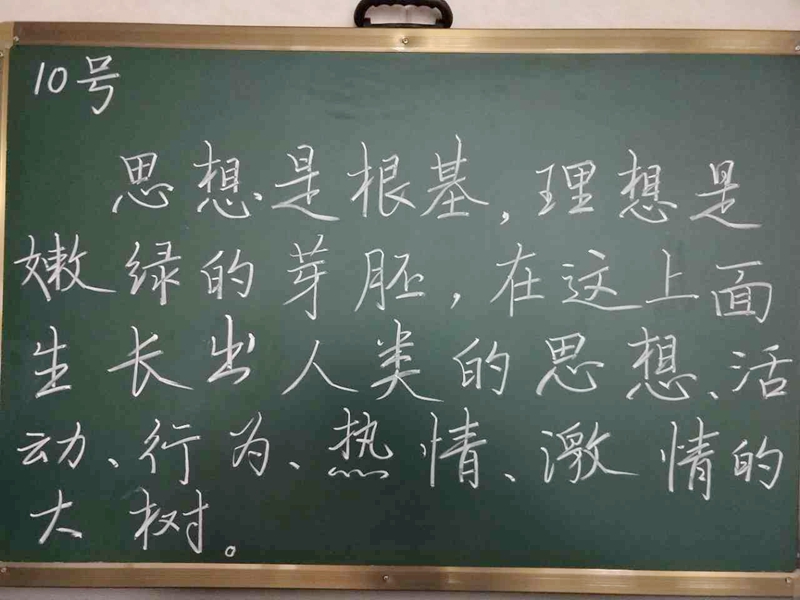 10号
思想是根基,理想是
嫩绿的芽胚,在这上面
生长出人类的思想、活
动、行为、热情、激情的
大树。